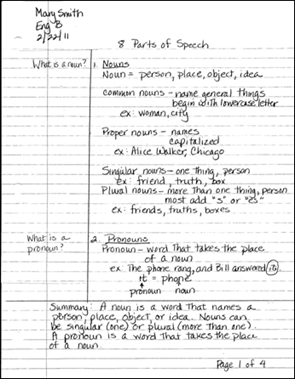 Mary Smith
Eng B
2/22/11
8 Parts of Speech
What is a noun?
1. Nouns
Noun = person, place, object, idea
common nouns - name general things
begin with lowercase letter
ex: woman, city
Proper nouns - names
capitalized
ex: Alice Walker, Chicago
Singular nouns - one thing, person
ex: friend, truth, box
Plural nouns - more than one thing, person
most add "s" or "es"
ex: friends, truths, boxes
What is a
pronoun?
2. Pronouns
Pronoun - word that takes the place
of a noun
ex. The phone rang, and Bill answered it.
it = phone
pronoun noun
Summary: A noun is a word that names a
person, place, object, or idea. Nouns can
be singular (one) or plural (more than one).
A pronoun is a word that takes the place
of a noun.
Page 1 of 4